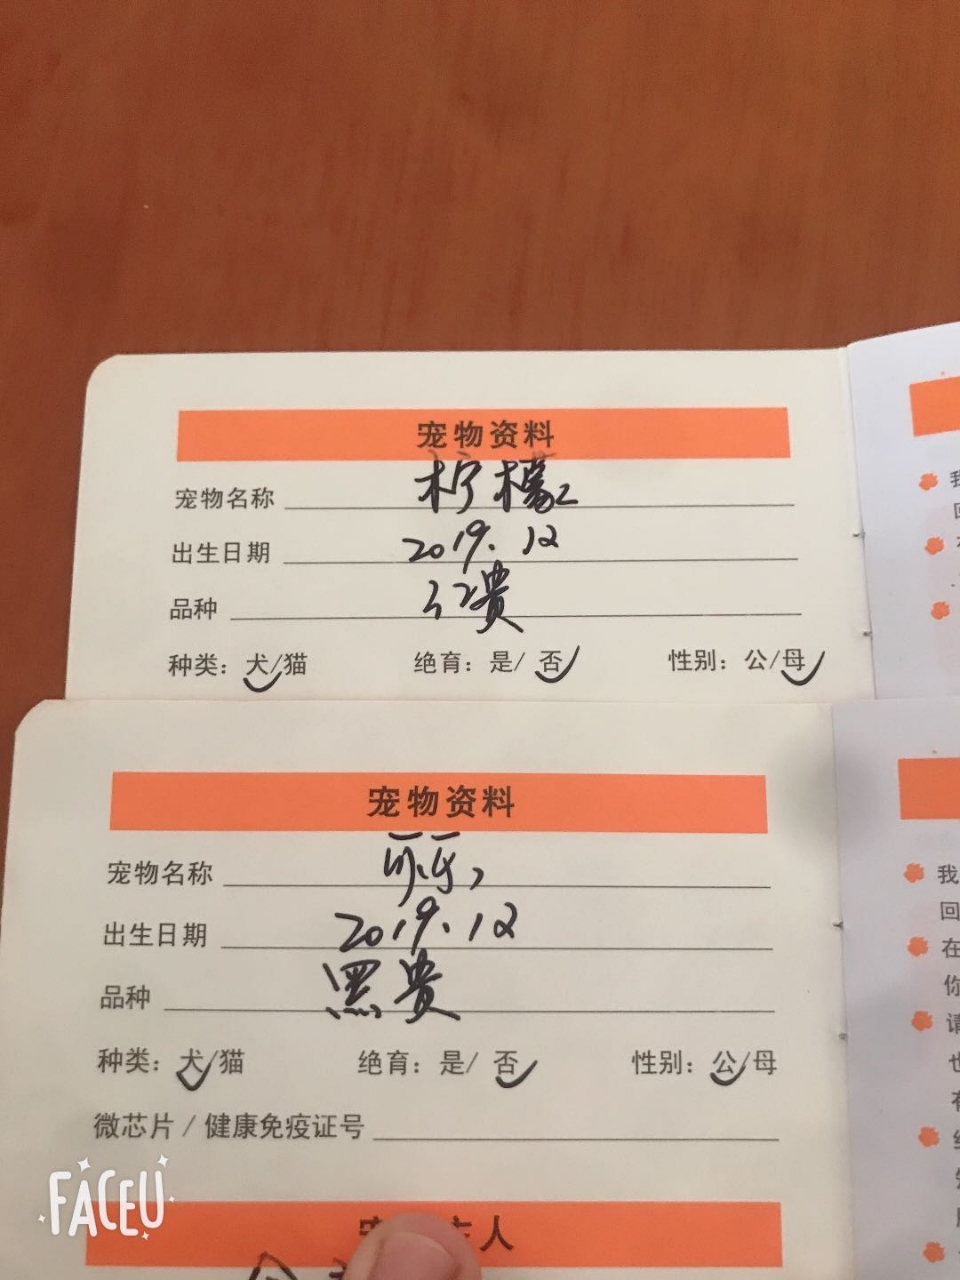 宠物资料
宠物名称 柠檬
出生日期 2019.12
品种 红贵
种类：犬/猫 绝育：是/否 性别：公/母
宠物资料
宠物名称 可乐
出生日期 2019.12
品种 黑贵
种类：犬/猫 绝育：是/否 性别：公/母
微芯片/健康免疫证号
人
我
回
在
你
请
也
有
FACEU